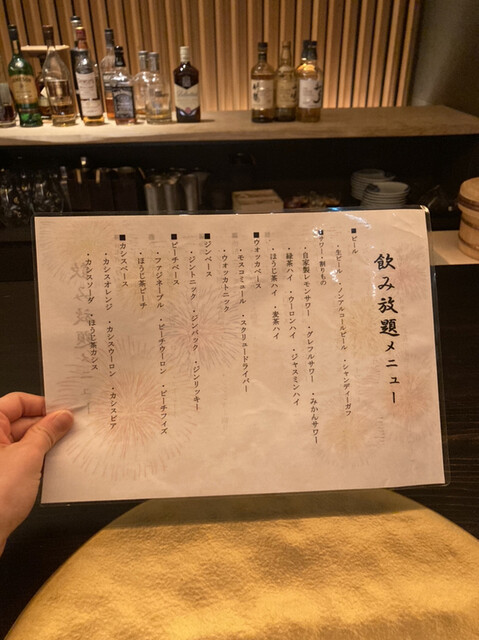 飲み放題メニュー
■ビール
・生ビール ・ノンアルコールビール ・シャンディーガフ
■サワー・割りもの
・自家製レモンサワー ・グレフルサワー ・みかんサワー
・緑茶ハイ ・ウーロンハイ ・ジャスミンハイ
・ほうじ茶ハイ ・麦茶ハイ
■ウォッカベース
・モスコミュール ・スクリュードライバー
・ウォッカトニック
■ジンベース
・ジントニック ・ジンバック ・ジンリッキー
■ピーチベース
・ファジネーブル ・ピーチウーロン ・ピーチフィズ
・ほうじ茶ピーチ
■カシスベース
・カシスオレンジ ・カシスウーロン ・カシスビア
・カシスソーダ ・ほうじ茶カシス